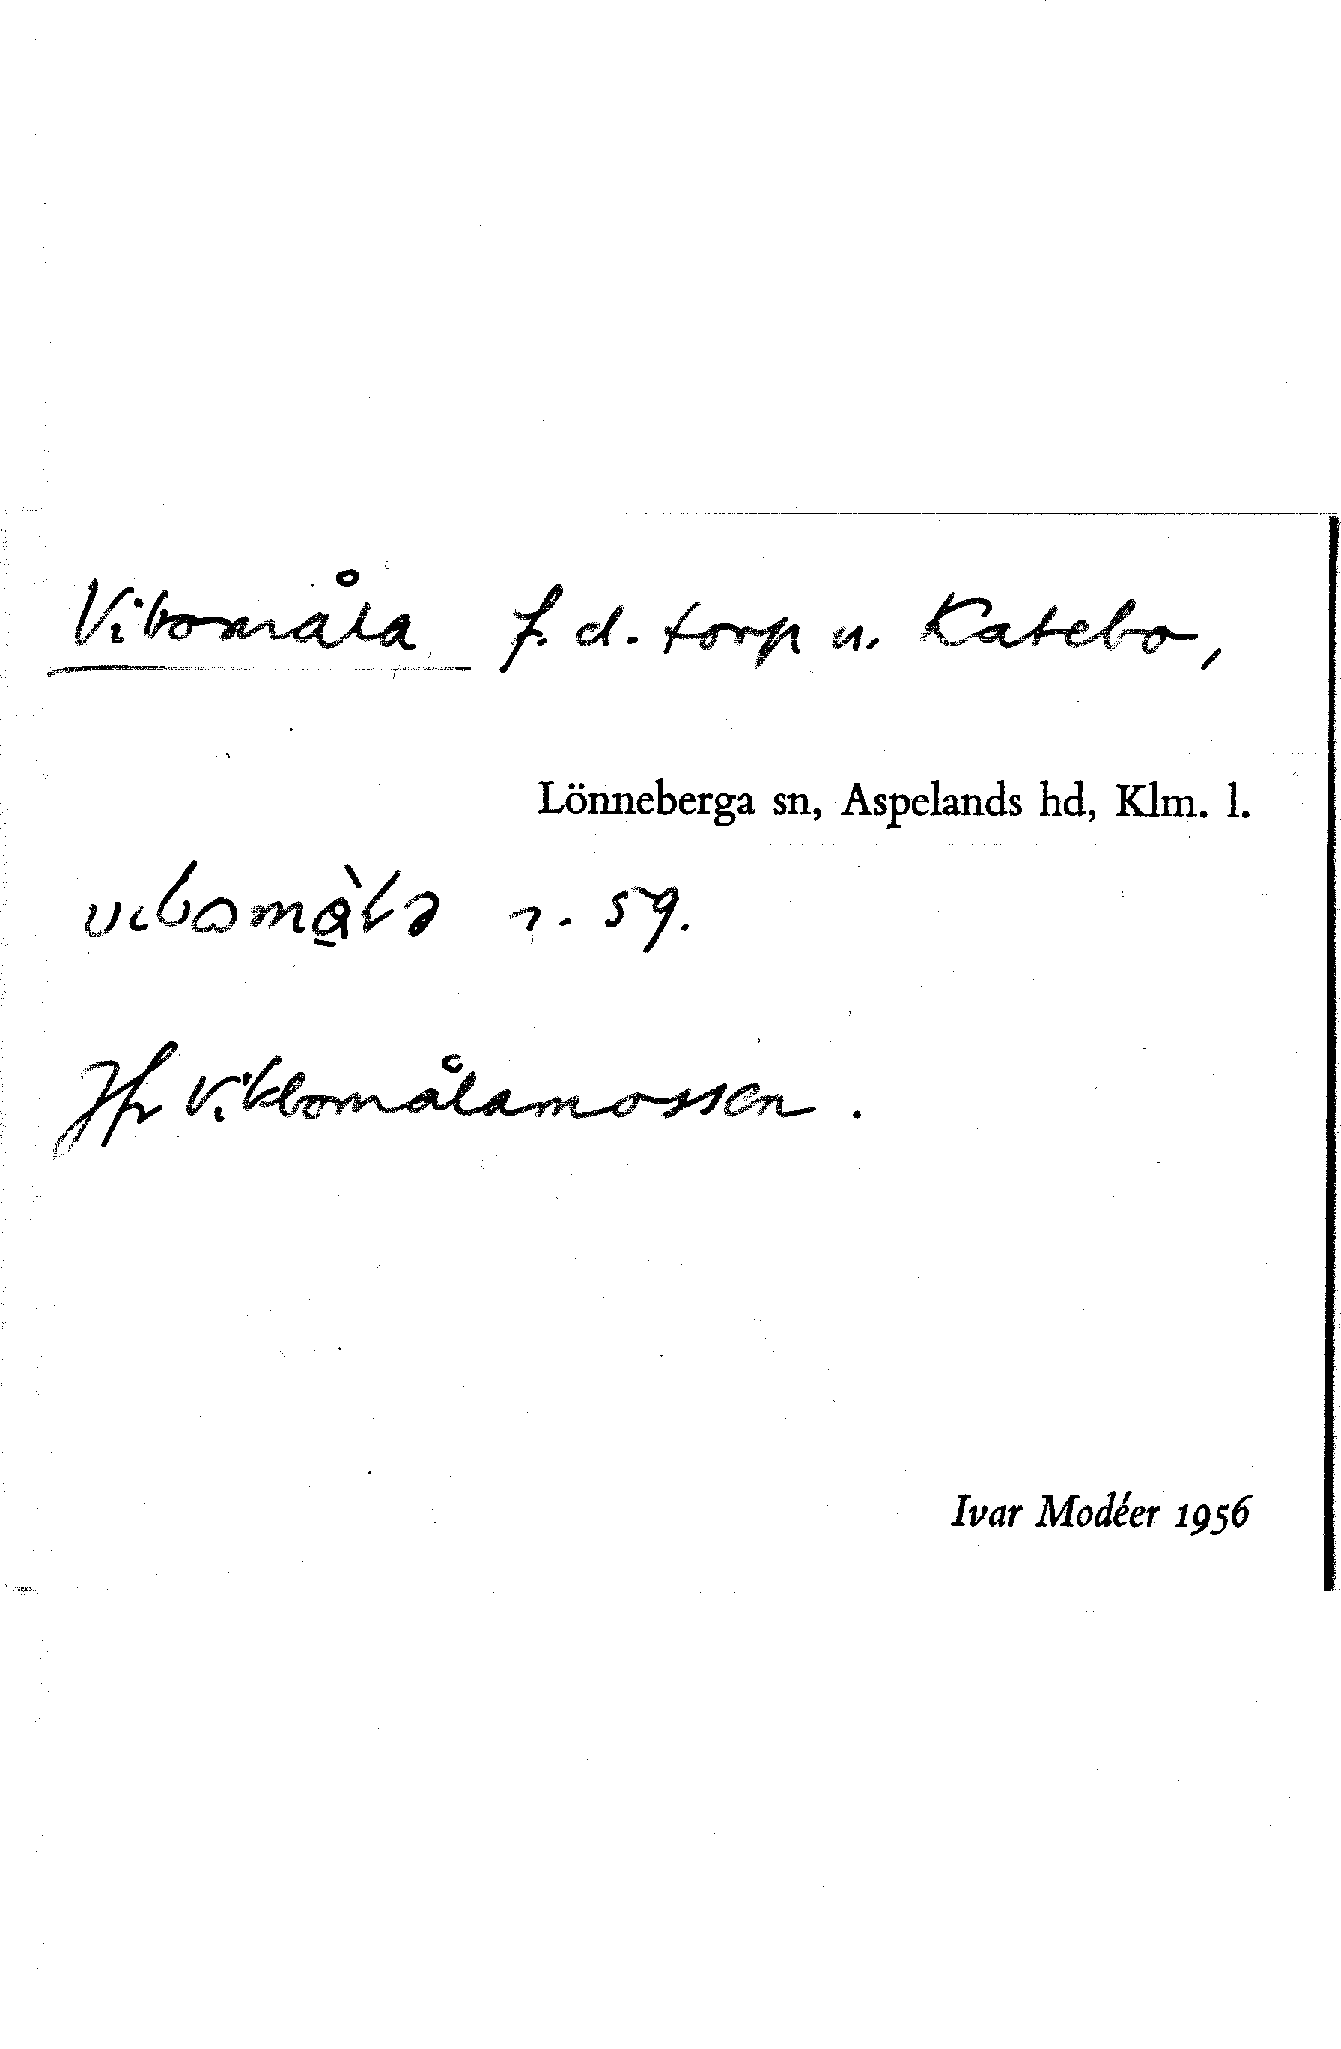 Vibomåla f. d. torp u. Katebo,
Lönneberga sn, Aspelands hd, Klm. l.
vɩbɷmà̱lə 1. 59.
Jfr Vibbomålamossen.
Ivar Modéer 1956